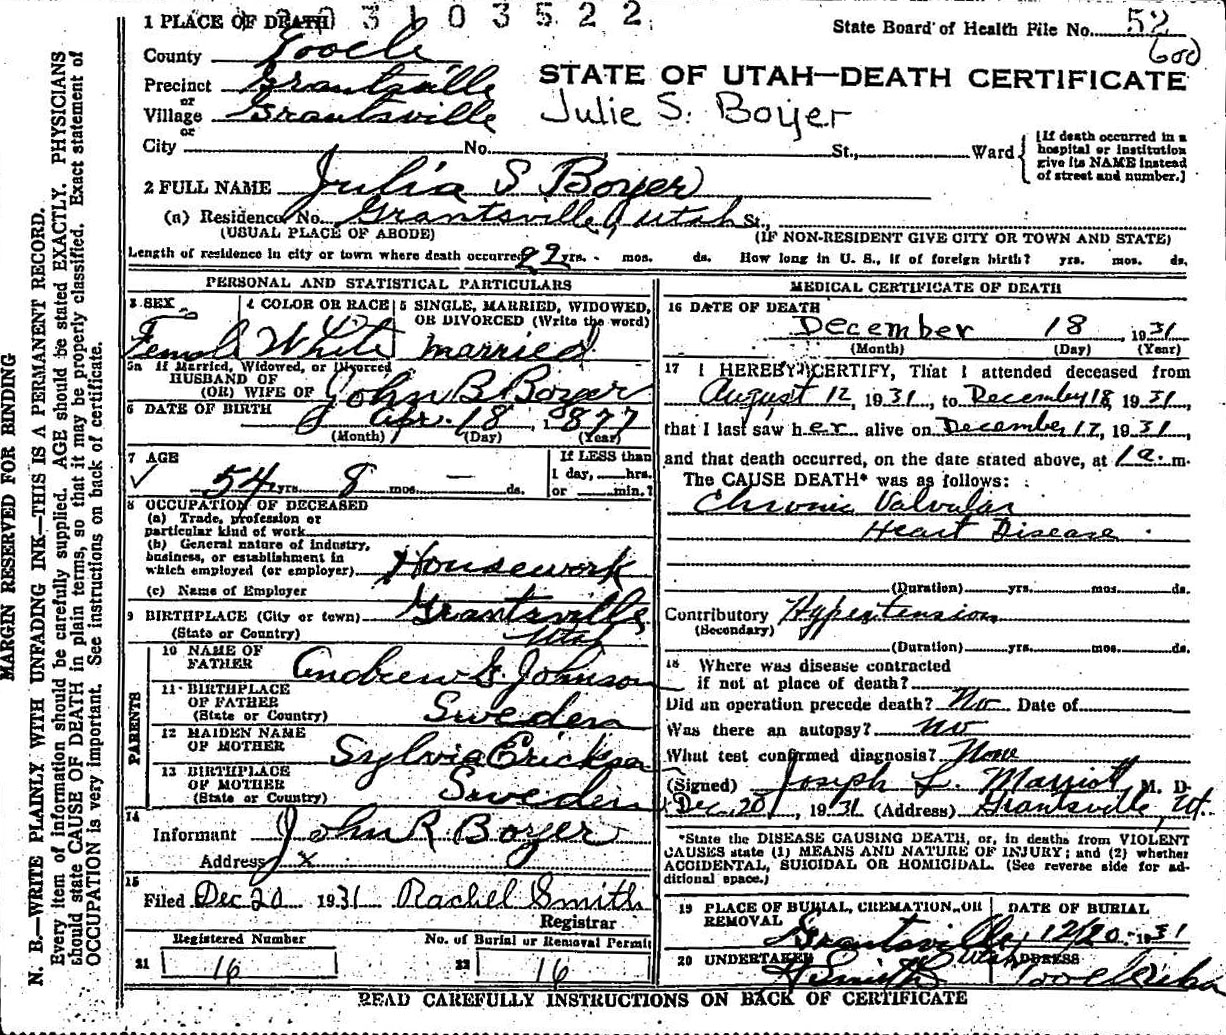 3 1 0 3 5 2 2
1 PLACE OF DEATH
State Board of Health File No. 52
600
County Tooele
Precinct Grantsville
or
Village Grantsville
or
STATE OF UTAH—DEATH CERTIFICATE
Julie S. Boyer
City No. St., Ward
[If death occurred in a
hospital or institution
give its NAME instead
of street and number.]
2 FULL NAME Julia S Boyer
(a) Residence No. Grantsville, Utah St.,
(USUAL PLACE OF ABODE) (IF NON-RESIDENT GIVE CITY OR TOWN AND STATE)
Length of residence in city or town where death occurred yrs. - mos. ds. How long in U. S., if of foreign birth? yrs. mos. ds.
PERSONAL AND STATISTICAL PARTICULARS
3 SEX
Female
4 COLOR OR RACE
White
5 SINGLE, MARRIED, WIDOWED,
OR DIVORCED (Write the word)
married
5a If Married, Widowed, or Divorced
HUSBAND OF
(OR) WIFE OF John B. Boyer
6 DATE OF BIRTH Apr. 18, 1877
(Month) (Day) (Year)
7 AGE
54 yrs. 8 mos. — ds.
If LESS than
1 day, hrs.
or min.?
8 OCCUPATION OF DECEASED
(a) Trade, profession or
particular kind of work
(b) General nature of industry,
business, or establishment in
which employed (or employer) Housework
(c) Name of Employer
9 BIRTHPLACE (City or town) Grantsville
(State or Country) Utah
PARENTS
10 NAME OF
FATHER Andrew G. Johnson
11 BIRTHPLACE
OF FATHER
(State or Country) Sweden
12 MAIDEN NAME
OF MOTHER Sylvia Erickson
13 BIRTHPLACE
OF MOTHER
(State or Country) Sweden
14
Informant John R. Boyer
Address x
15
Filed Dec 20 1931 Rachel Smith
Registrar
Registered Number
21 16
No. of Burial or Removal Permit
22 16
MEDICAL CERTIFICATE OF DEATH
16 DATE OF DEATH
December 18, 1931
(Month) (Day) (Year)
17 I HEREBY CERTIFY, That I attended deceased from
August 12, 1931, to December 18, 1931,
that I last saw her alive on December 17, 1931,
and that death occurred, on the date stated above, at 1 a. m.
The CAUSE DEATH* was as follows:
Chronic Valvular
Heart Disease
(Duration) yrs. mos. ds.
Contributory Hypertension
(Secondary)
(Duration) yrs. mos. ds.
18 Where was disease contracted
if not at place of death?
Did an operation precede death? No Date of
Was there an autopsy? no
What test confirmed diagnosis? None
(Signed) Joseph L. Marriott M. D.
Dec. 20, 1931 (Address) Grantsville, Ut.
*State the DISEASE CAUSING DEATH, or, in deaths from VIOLENT
CAUSES state (1) MEANS AND NATURE OF INJURY; and (2) whether
ACCIDENTAL, SUICIDAL OR HOMICIDAL. (See reverse side for ad-
ditional space.)
19 PLACE OF BURIAL, CREMATION, OR
REMOVAL
Grantsville, Utah
DATE OF BURIAL
12/20 1931
20 UNDERTAKER
Smith
ADDRESS
Tooele
READ CAREFULLY INSTRUCTIONS ON BACK OF CERTIFICATE
MARGIN RESERVED FOR BINDING
N. B.—WRITE PLAINLY WITH UNFADING INK—THIS IS A PERMANENT RECORD.
Every item of information should be carefully supplied. AGE should be stated EXACTLY. PHYSICIANS
should state CAUSE OF DEATH in plain terms, so that it may be properly classified. Exact statement of
OCCUPATION is very important. See instructions on back of certificate.